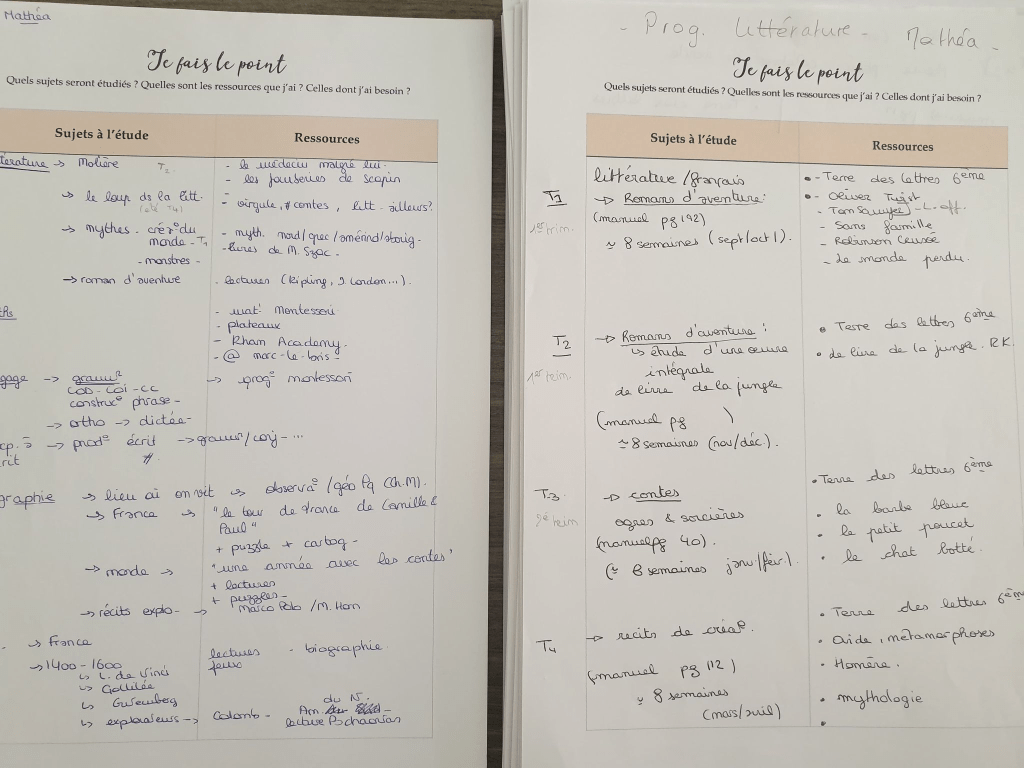 Mathéa
Je fais le point
Quels sujets seront étudiés ? Quelles sont les ressources que j'ai ? Celles dont j'ai besoin ?
Sujets à l'étude
Ressources
térature → Molière T2
- le médecin malgré lui.
- les fourberies de scapin
→ le loup ds la litt.
- virgule, # contes, litt. ailleurs?
→ mythes. créa° du
monde - T4
- monstres -
- myth. nord/grec/amérind/
- livres de M. Szac.
→ roman d'aventure
. lectures (Kipling, J. London...).
ths
- mat' Montessori
- plateaux
- Khan Academy.
- @ marc-le-bris
gage → gram²
COD - COI - CC
construc° phrase -
→ prog° montessori
→ ortho → dictée -
→ prod° écrit → gram/conj - ...
rit #
graphie → lieu où on vit → observa° /géo Pq (Ch.M).
→ France → "le tour de france de Camille &
Paul"
+ puzzle + cartog -
→ monde → "une année avec les contes"
+ lectures
+ puzzles -
→ récits explo - → Marco Polo / M. Horn
→ France
→ 1400 - 1600
↳ L. de Vinci
↳ Gallilée
↳ Gutemberg
↳ explorateurs →
lectures - biographie.
jeux
Colomb - Am. du N.
lecture
- Prog. littérature - Mathéa -
Je fais le point
Quels sujets seront étudiés ? Quelles sont les ressources que j'ai ? Celles dont j'ai besoin ?
Sujets à l'étude
Ressources
T1
1er trim.
littérature / français
→ Romans d'aventure :
(manuel pg 192)
≈ 8 semaines (sept/oct).
- Terre des lettres 6ème
- Oliver Twist
- Tom Sawyer - L. off.
- Sans famille
- Robinson Crusoé
- Le monde perdu.
T2
1er trim.
→ Romans d'aventure :
↳ étude d'une œuvre
intégrale
Le livre de la jungle
(manuel pg )
≈ 8 semaines (nov/déc).
• Terre des lettres 6ème
• Le livre de la jungle. R.K.
T3
2è trim
→ contes
ogres & sorcières
(manuel pg 40).
(≈ 8 semaines janv/fév.).
• Terre des lettres 6ème
• la barbe bleue
• le petit poucet
• le chat botté.
T4
→ récits de créa°.
(manuel pg 112)
≈ 8 semaines
(mars/avril)
• Terre des lettres 6ème
• Ovide, métamorphoses
• Homère.
• mythologie